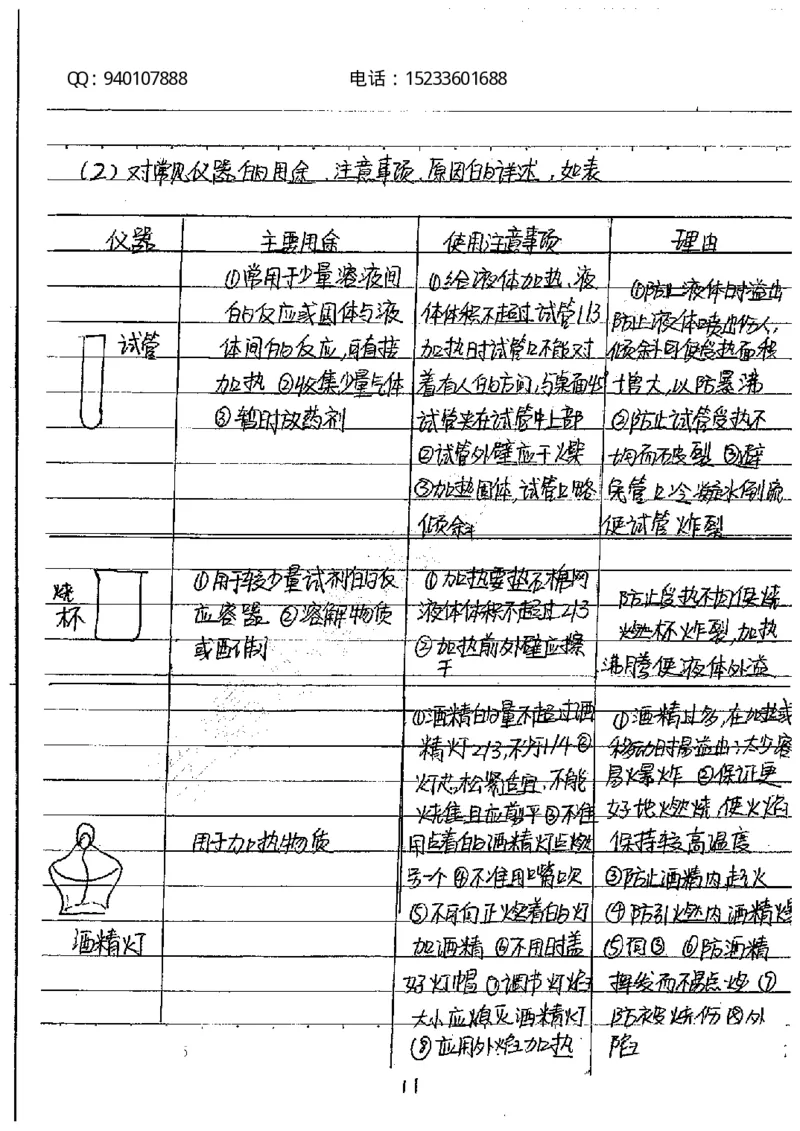 QQ: 940107888 电话：15233601688
(2) 对常见仪器的用途、注意事项、原因的详述，如表
仪器 主要用途 使用注意事项 理由
试管
①常用于少量溶液间
的反应或固体与液
体间的反应，可直接
加热 ②收集少量气体
③暂时放药剂
①给液体加热，液
体体积不超过试管1/3
加热时试管口不能对
着有人的方向，与桌面45°
试管夹在试管中上部
②试管外壁应干燥
③加热固体，试管口略
倾斜
①防止液体时溢出
防止液体喷出伤人，
倾斜可使受热面积
增大，以防暴沸
②防止试管受热不
均而破裂 ③避
免管口冷凝水倒流
使试管炸裂
烧
杯
①用于较少量试剂的反
应容器 ②溶解物质
或配制
①加热要垫石棉网
液体体积不超过2/3
②加热前外壁应擦
干
防止受热不均使烧
燃杯炸裂，加热
沸腾使液体外溢
酒精灯
用于加热物质
①酒精的量不超过酒
精灯2/3，不少于1/4 ②
灯芯，松紧适宜，不能
烧焦且应剪平 ③不准
用点着的酒精灯点燃
另一个 ④不准用嘴吹
⑤不可向正燃着的灯
加酒精 ⑥不用时盖
好灯帽 ⑦调节灯焰
大小应熄灭酒精灯
⑧应用外焰加热
①酒精过多，在加热或
移动时易溢出；太少容
易爆炸 ②保证更
好地燃烧，使火焰
保持较高温度
③防止酒精内起火
④防引燃内酒精爆
⑤同③ ⑥防酒精
挥发而不易点燃 ⑦
防被烧伤 因外
焰
11